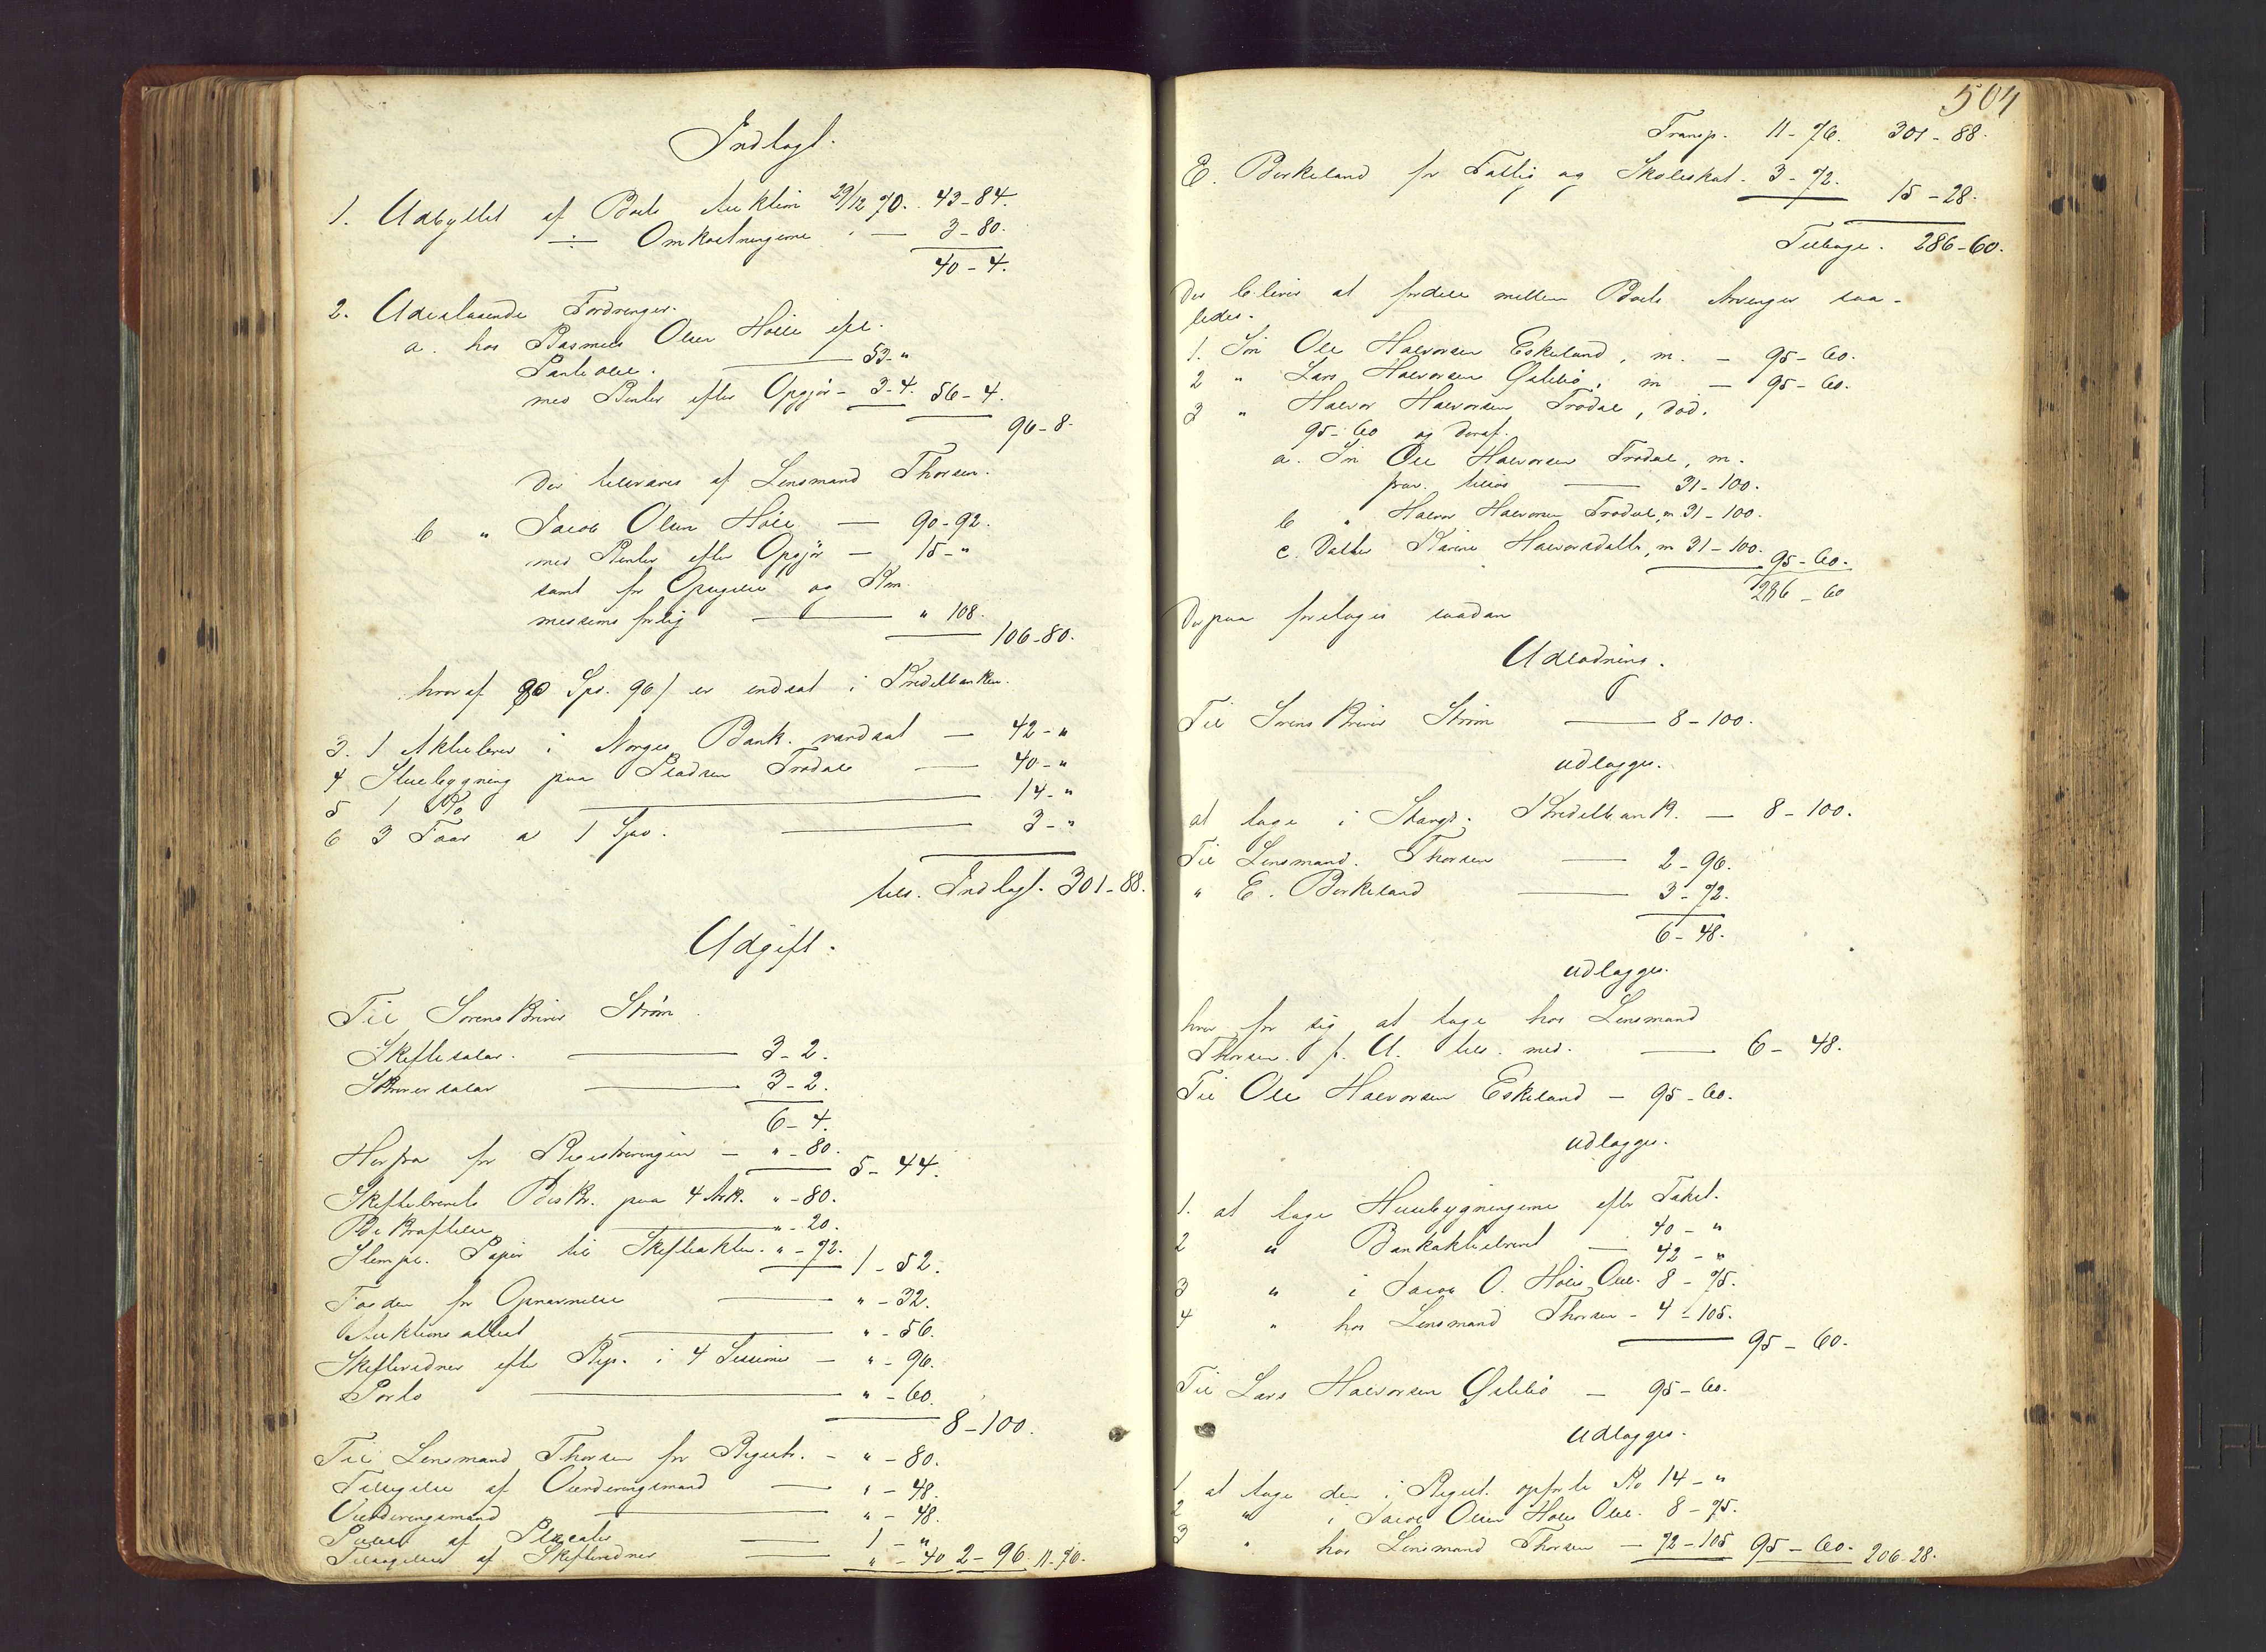 Indtægt.
1. Udbyttet af Boets Auktion 29/12 70. 43-84.
÷ Omkostningerne " — 3-80.
40-4.
2. Udestaaende Fordringer.
a. hos Rasmus Olsen Høie efter
Panteobl. — 53-"
med Renter efter Opgjør - 3-4. 56-4.
96-8.
der tilsvares af Lensmand Thorsen.
b " Jacob Olsen Høie — 90-92.
med Renter efter Opgjør — 15-"
samt for Opsigelse og Kom
missions forlig — " 108.
106-80.
hvoraf 90 Spd. 96 / er indsat i Kreditbanken.
3. 1 Aktiebrev i Norges Bank. værdsat — 42-"
4 Stuebygning paa Pladsen Trodal — 40-"
5 1 Ko — 14-"
6 3 Faar a 1 Spd. — 3-"
tils. Indtægt. 301-88.
Udgift.
Til Sorenskriver Strøm
Skiftesalær. — 3-2.
Skriversalær — 3-2.
6-4.
Herfra for Registreringen — "-80.
5-44.
Skiftebrevets Beskr. paa 4 Ark. "-80.
Bekræftelse — "-20.
Stempl. Papir til Skifteakten. "-72.
1-52.
Foeden for Opnævnelse — "-32.
Auktions attest — "-56.
Skiftevidner efter Rep. i 4 Sessioner — "-96.
Porto — "-60.
8-100.
Til Lensmand Thorsen for Registr. - "-80.
Tilsigelse af Vurderingsmænd — "-48.
Vurderingsmænd — "-48.
af Placater — 1-"
Tilsigelse af Skiftevidner — "-40 2-96. 11-76.
504
Transp. 11-76. 301-88.
E. Birkeland for Fattig og Skoleskat. 3-72.
15-28.
Tilbage. 286-60.
der bliver at fordele mellem Boets Arvinger saa-
ledes.
1. Søn Ole Halvorsen Eskeland, m. — 95-60.
2 " Lars Halvorsen Østebø, m — 95-60.
3 " Halvor Halvorsen Trodal, død.
95-60 og deraf.
a. Søn Ole Halvorsen Trodal, m.
— 31-100.
b " Halvor Halvorsen Trodal, m 31-100.
c. Datter Karine Halvorsdatter, m 31-100. 95-60.
286-60
Derpaa foretages saadan
Udlodning.
Til Sorenskriver Strøm — 8-100.
udlægges.
at tage i Kreditbank. — 8-100.
Til Lensmand. Thorsen — 2-96.
" E. Birkeland — 3-72.
6-48.
udlægges.
hver for sig at tage hos Lensmand
Thorsen. f. U. tils. med. — 6-48.
Til Ole Halvorsen Eskeland — 95-60.
udlægges.
1. at tage Huusbygningerne efter Taket.
40-"
2 " Bankaktiebrevet — 42-"
3 " i Jacob O. Høies Obl. 8-75.
4 " hos Lensmand Thorsen - 4-105.
95-60.
Til Lars Halvorsen Østebø — 95-60.
Udlægges.
1 at tage den i Regist. opførte Ko 14-"
2 " i Jacob Olsen Høies Obl. 8-75.
3 " hos Lensmand Thorsen — 72-105 95-60. 206-28.